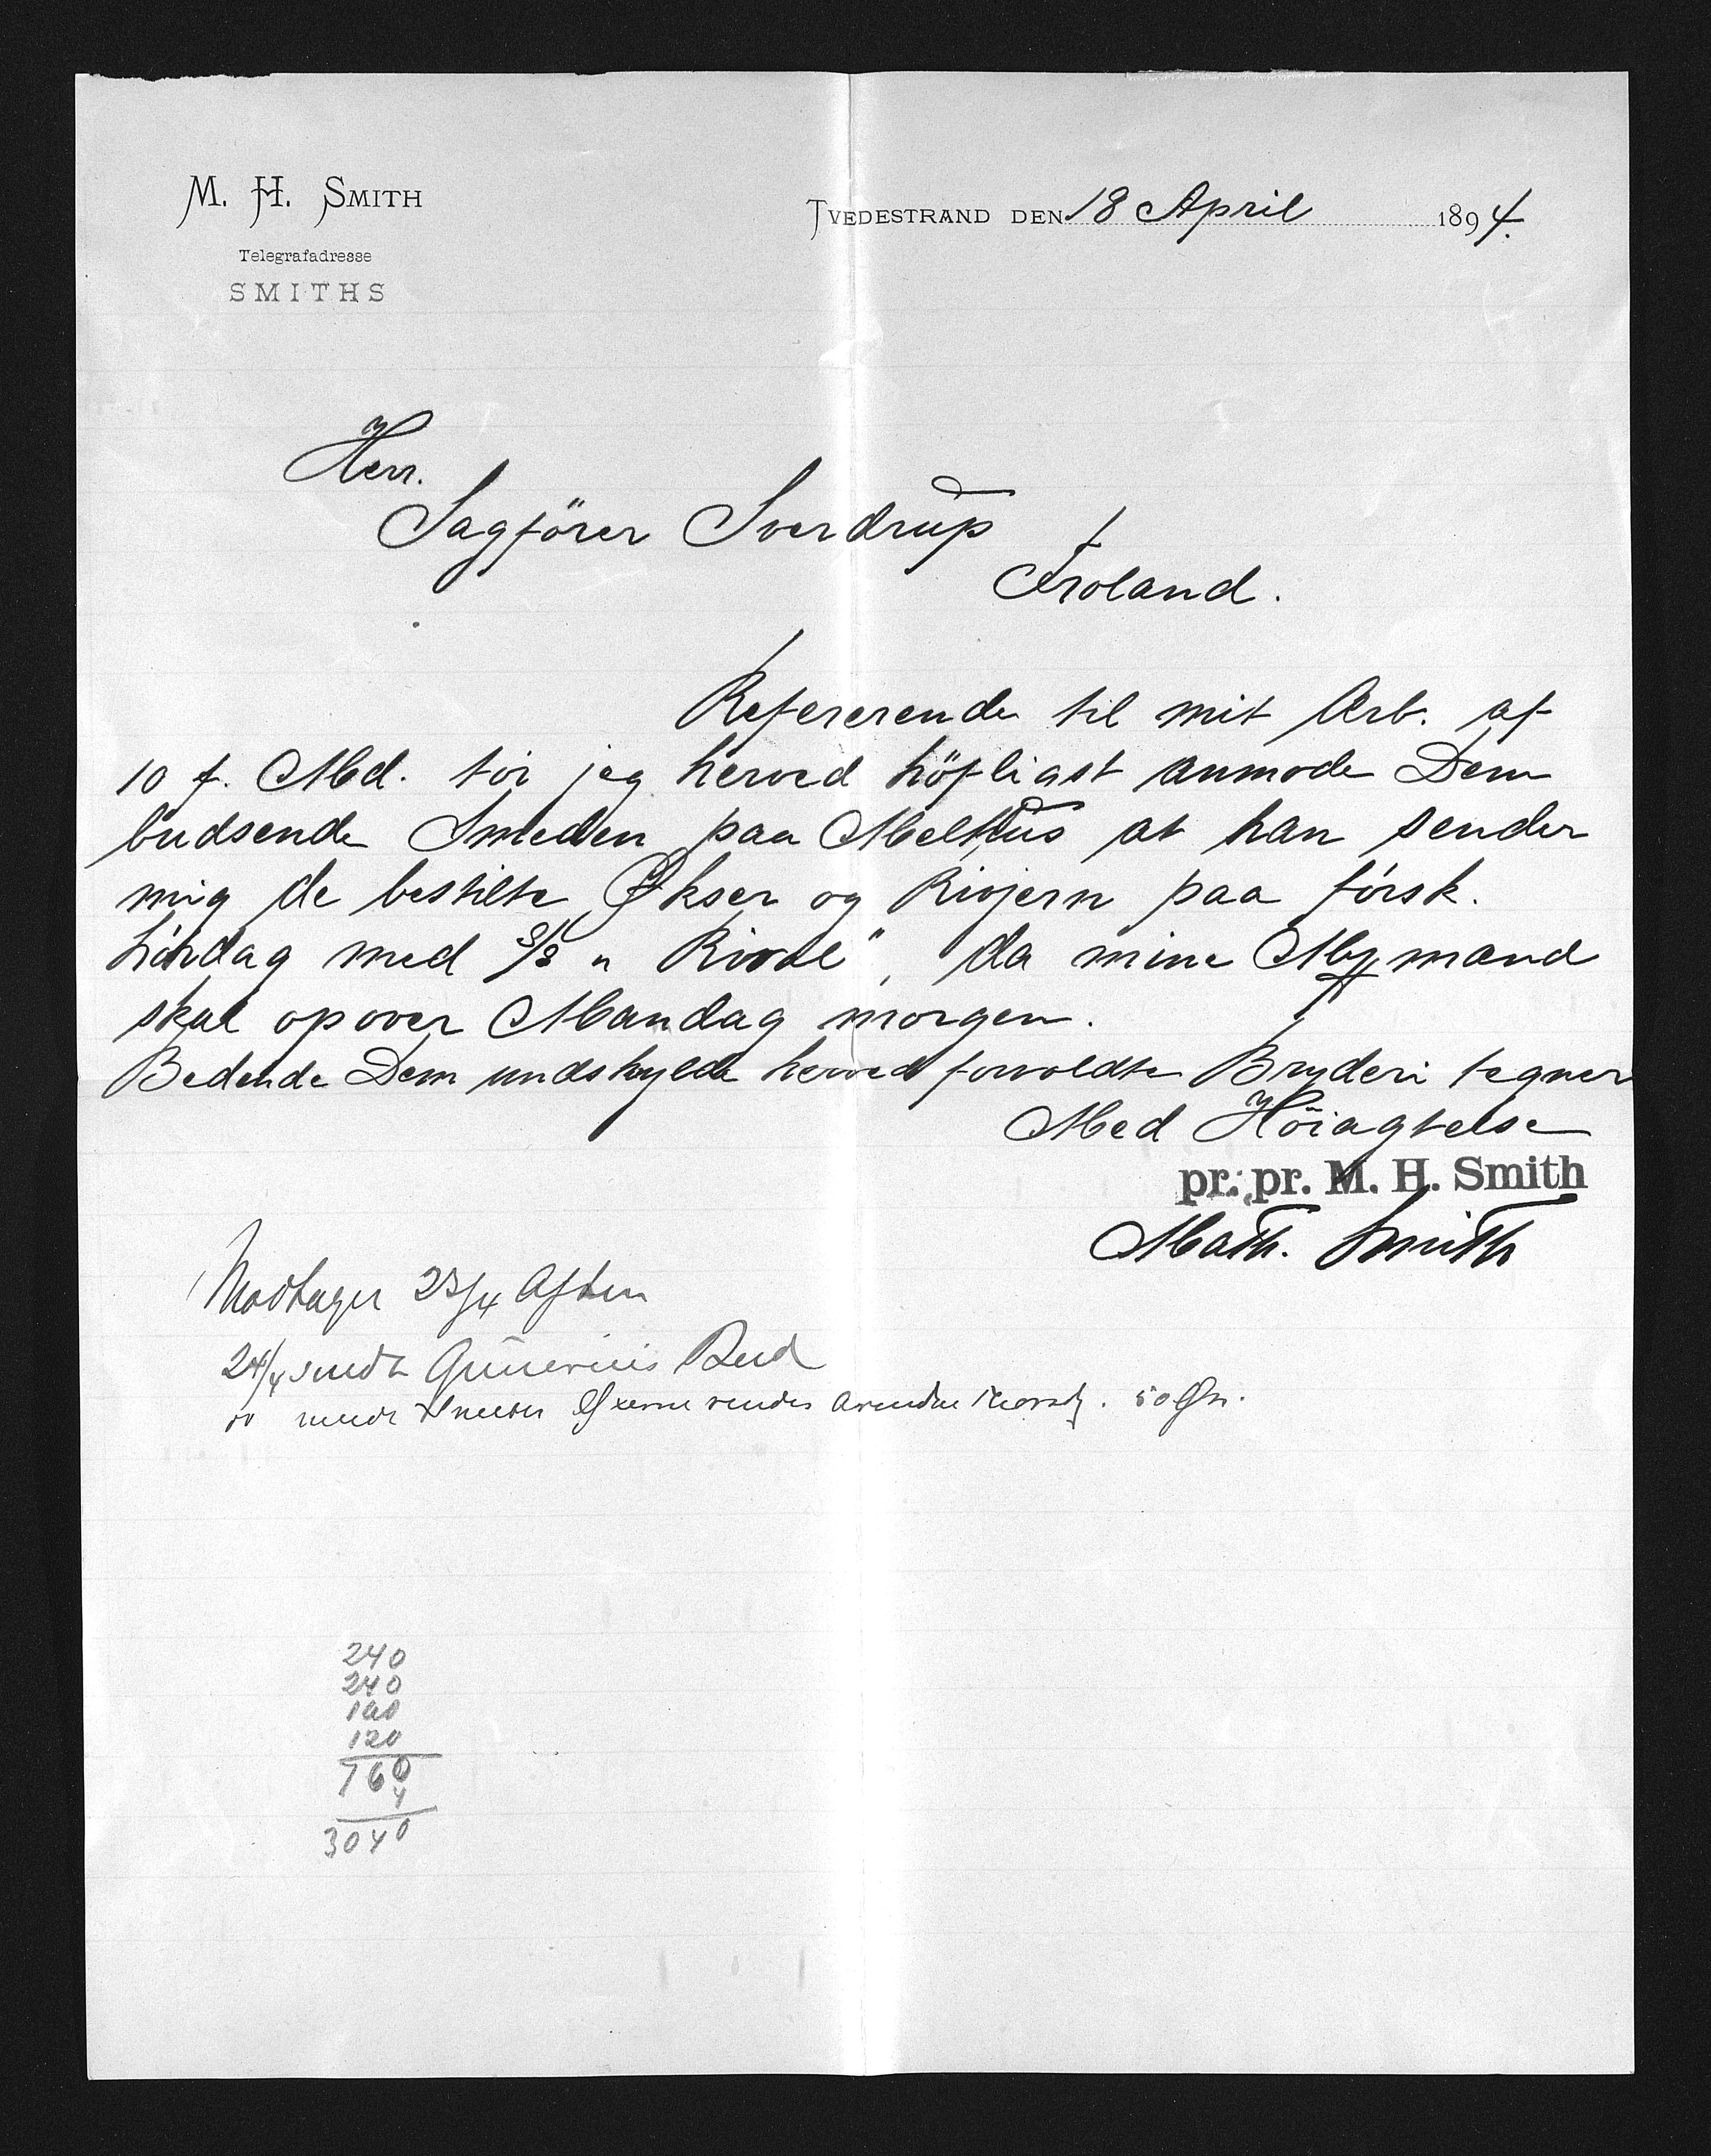 M. H. SMITH
Telegrafadresse
SMITHS
TVEDESTRAND DEN 18 April 1894.
Herr.
Sagförer Sverdrup
Froland.
Refererende til mit Arb. af
10 f. Md. tör jeg herved höfligst anmode Dem
budsende Smeden paa Melhus at han sender
mig de bestilte Økser og Rivjern paa försk.
Lördag med S/S "Rival", da mine Mymænd
skal opover Mandag morgen.
Bedende Dem undskylde herved forvoldte Bryderi tegner
Med Höiagtelse
pr. pr. M. H. Smith
Math. Smith
Modtaget 23/4 Aften
24/4 sendt Bud
50 Øre.
240
240
160
120
760
4
3040